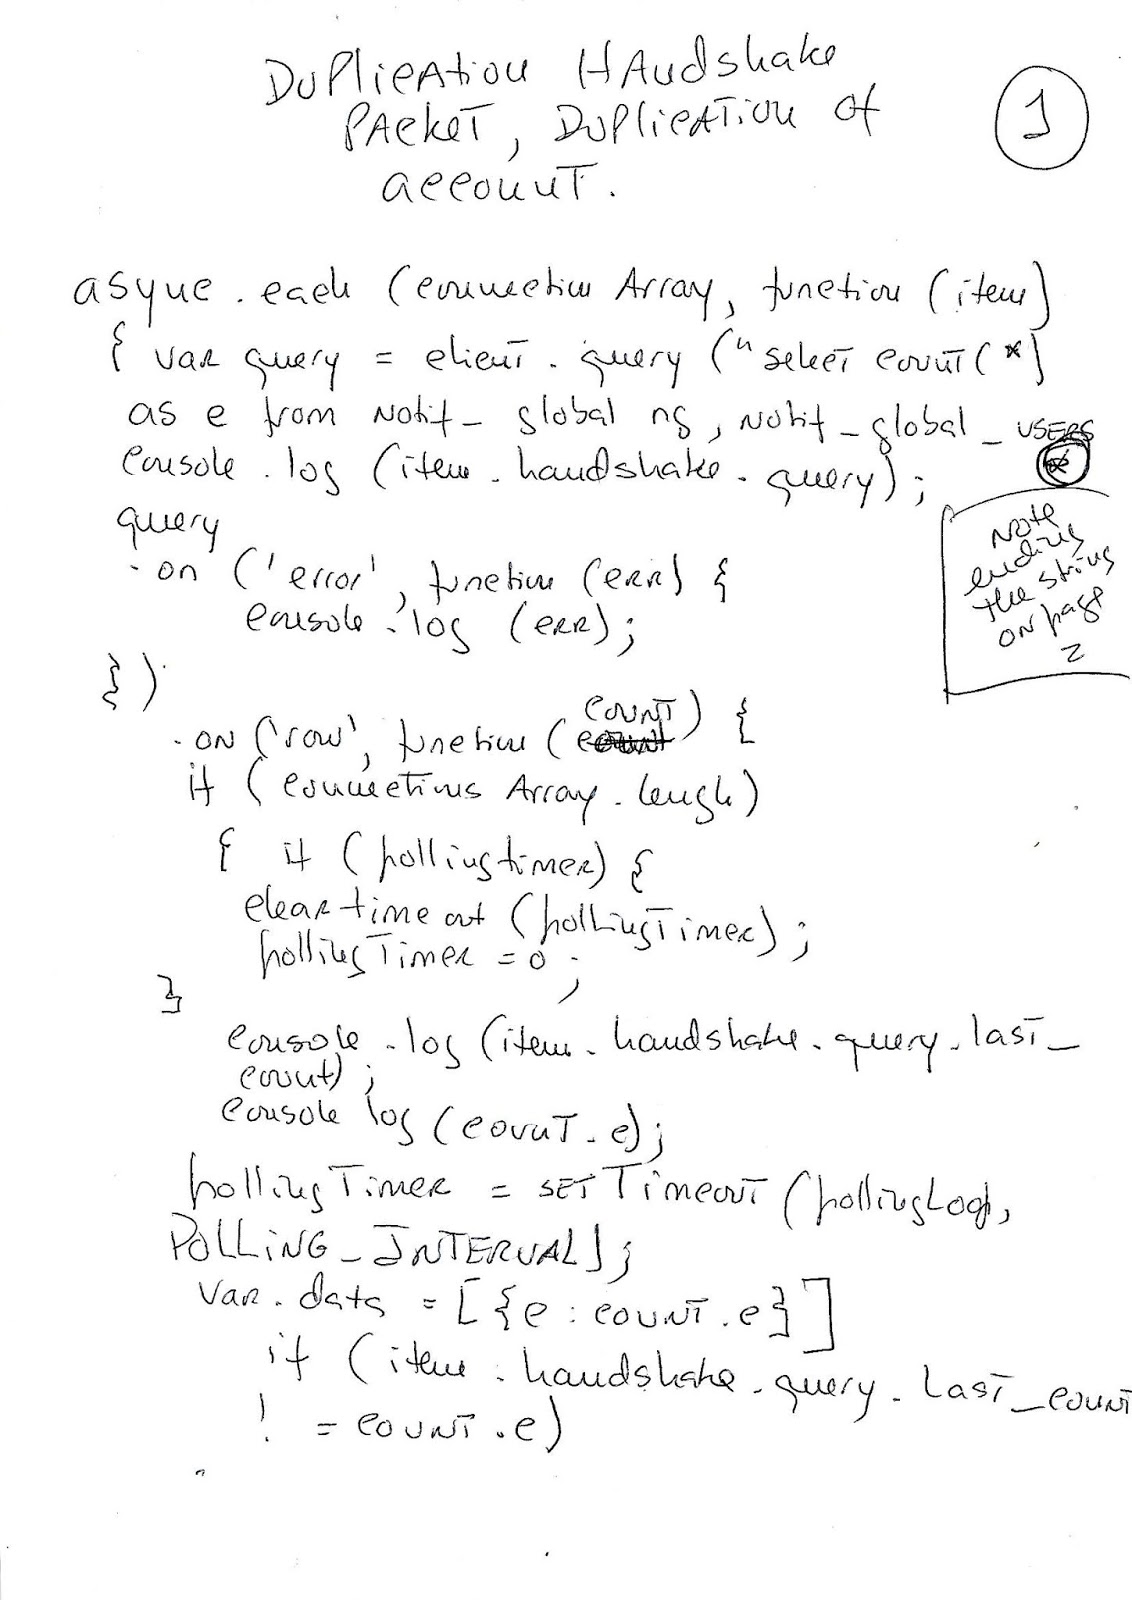 Duplication Handshake
Packet, Duplication of
account.
1
async.each (connection Array, function (item)
{ var query = client.query ("select count(*)
as c from notif_global ng, notif_global_users
console.log (item.handshake.query);
query
Note
ending
the string
on page
2
.on ('error', function (err) {
console.log (err);
})
.on ('row', function (count) {
if (connections Array.length)
{ if (pollingtimer) {
clear time out (pollingTimer);
pollingTimer = 0;
}
console.log (item.handshake.query.last_
count);
console log (count.c);
pollingTimer = setTimeout (pollingLoop,
POLLING_INTERVAL);
var.data = [{c : count.c}]
if (item.handshake.query.last_count
! = count.c)